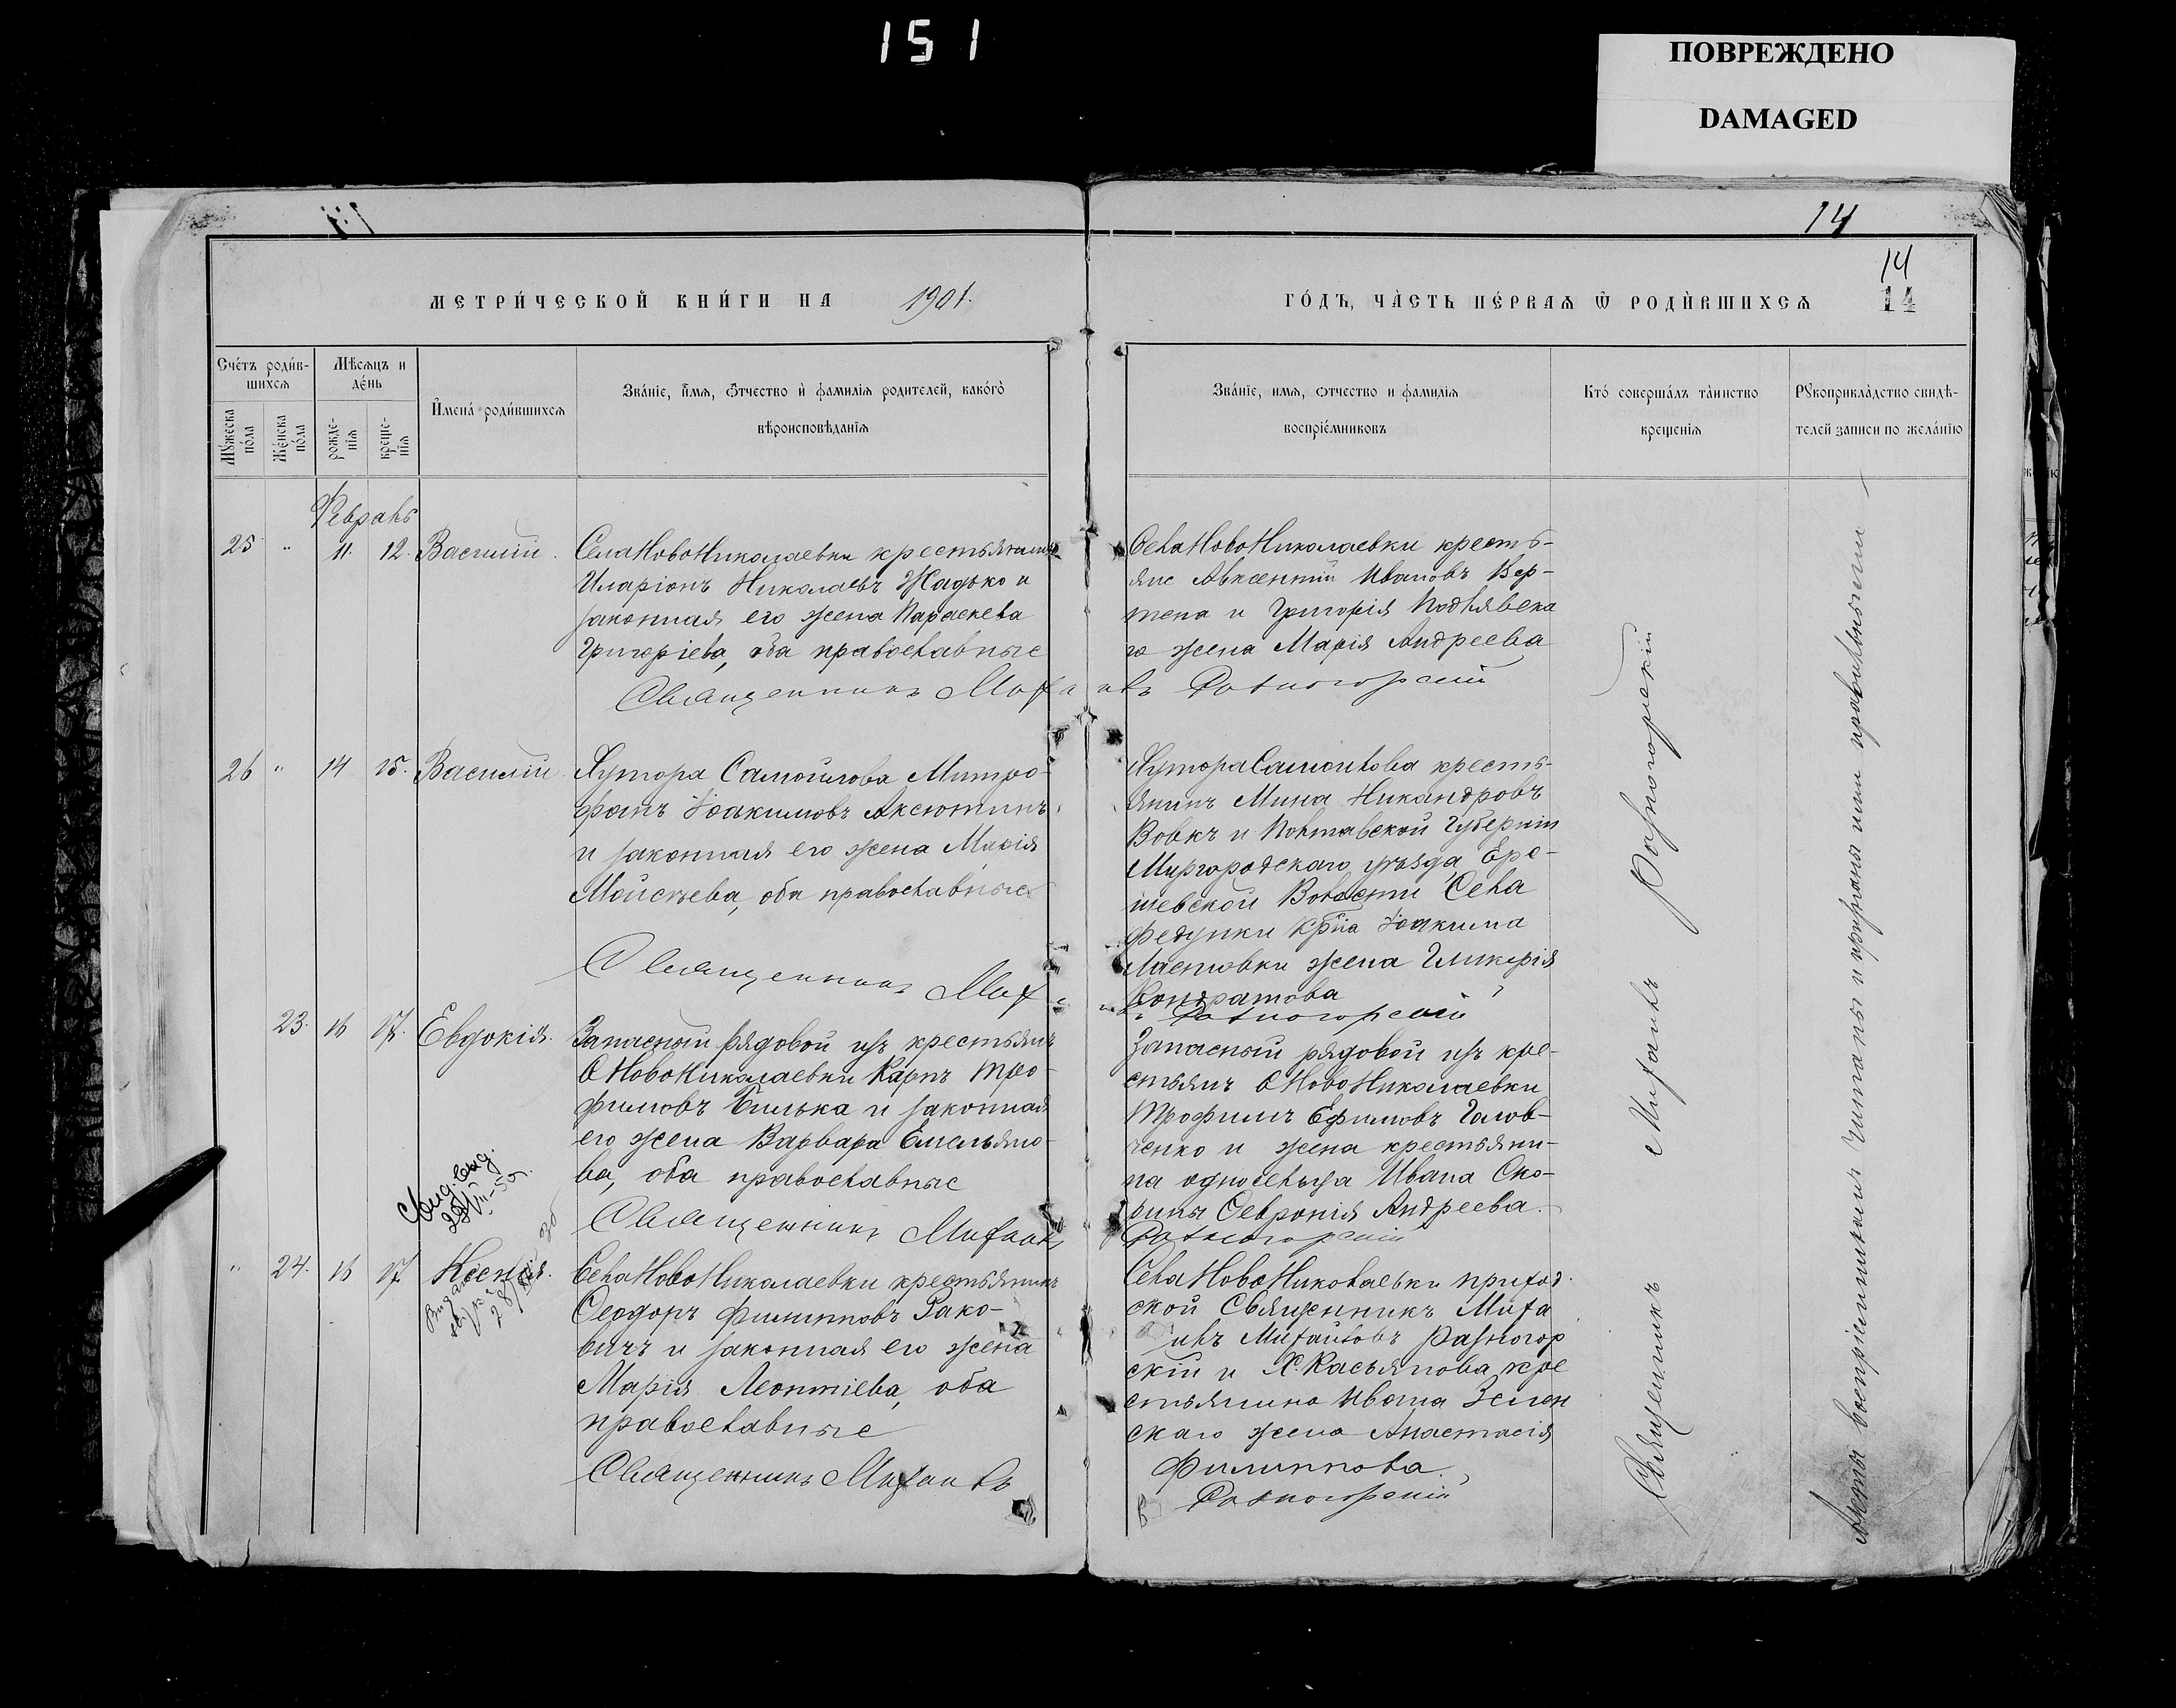 151
ПОВРЕЖДЕНО
DAMAGED
14
14
14
МЕТРИ́ЧЕСКОЙ КНИ́ГИ НА 1901.
ГО́ДЪ, ЧА̀СТЬ ПЕ́РВАѦ Ѿ РОДЍВШИХСѦ
Сче́тъ роди́в-
шихсѧ
Мꙋ́жеска по́ла
Же́нска по́ла
Мѣ́сѧцъ и
де́нь
рожде-
нїѧ
креще-
нїѧ
И҆мена̀ роди́вшихсѧ
Зва́нїе, и҆́мѧ, ѻ҆́тчество и҆ фамилїѧ родителей, како́гѡ
вѣроисповѣ́данїѧ
Зва́нїе, имѧ, ѻтчество и фамилїѧ
воспрїе́мниковъ
Кто́ соверша́лъ та̀инство
креще́нїѧ
Рꙋкоприкла̀дство свидѣ́-
телей записи по жела́нїю
Февраль
25 " 11. 12. Василій.
Села НовоНиколаевки крестьянинъ
Иларіонъ Николаевъ Жадько и
законная его жена Параскева
Григоріева, оба православные
Села НовоНиколаевки кресть-
яне Авксентій Ивановъ Вер-
тепа и Григорія Подлявска
го жена Марія Андреева
Священникъ Михаилъ Разногорскій
26 " 14 15. Василій.
Хутора Самойлова Митро-
фанъ Іоакимовъ Аксютинъ
и законная его жена Марія
Мойсѣева, оба православные
Хутора Самойлова кресть-
янинъ Мина Никандровъ
Вовкъ и Полтавской Губерніи
Миргородскаго уѣзда, Ере-
шевской Волости Села
Федунки Кр̃на Іоакима
Ластовки жена Гликерія
Кондратова
Священникъ Михаилъ Разногорскій
23. 16 17. Евдокія.
Запасный рядовой изъ крестьянъ
с НовоНиколаевки Карпъ Тро-
фимовъ Билька и законная
его жена Варвара Емельяно-
ва, оба православные
Запасный рядовой изъ кре-
стьянъ с НовоНиколаевки
Трофимъ Ефимовъ Голов-
ченко и жена крестьяни-
на односельца Ивана Ско-
рины Февронія Андреева.
Священникъ Михаилъ Разногорскій
" 24. 16 17. Ксенія.
Села НовоНиколаевки крестьянинъ
Феодоръ Филипповъ Рако-
вичъ и законная его жена
Марія Леонтіева, оба
православные
Села НовоНиколаевки приход-
ской Священникъ Миха
илъ Михайловъ Разногор
скій и Х. Касьянова кре
стьянина Ивана Зелен
скаго жена Анастасія
Филиппова.
Священникъ Михаилъ Разногорскій
Священникъ Михаилъ Разногорскій
Акты воспріемникамъ читаны и признаны ими правильными